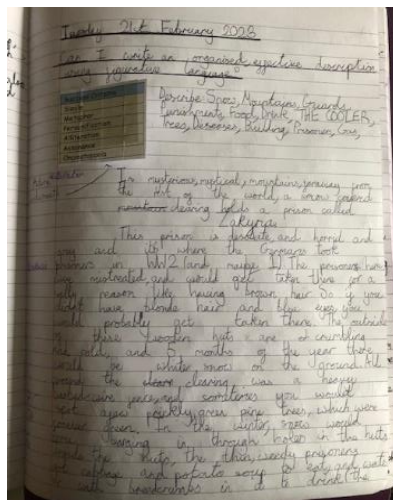 Tuesday 21st February 2023
Can I write an organised, effective description
using figurative language?
Simile
Metaphor
Personification
Alliteration
Onomatopoeia
Describe Snow, Mountains, Guards,
Punishment, Food, Drink, THE COOLER,
Trees, Diseases, Building, Prisoner, Gas,
In mysterious, mystical, mountains, faraway from
the rest of the world, a snow covered
clearing holds a prison called
This prison is desolate, and horrid and
gray and its where the Germans took
prisoners in WW2 (and maybe 1). The prisoners here
were mistreated, and would get taken there for a
silly reason like having brown hair. So if you
didnt have blonde hair and blue eyes you
would probably get taken there. The outside
of these wooden huts are of crumbling
and cold, and 5 months of the year there
would be white snow on the ground. All
around the clearing was a heavy
wire fence, and sometimes you would
spot prickly, green pine trees, which were
green. In the winter, snow would
come barging in through holes in the huts
inside the huts, the thin, weedy prisoners
got cabbage and potato soup to eat, and water
with breadcrumbs in it to drink. The